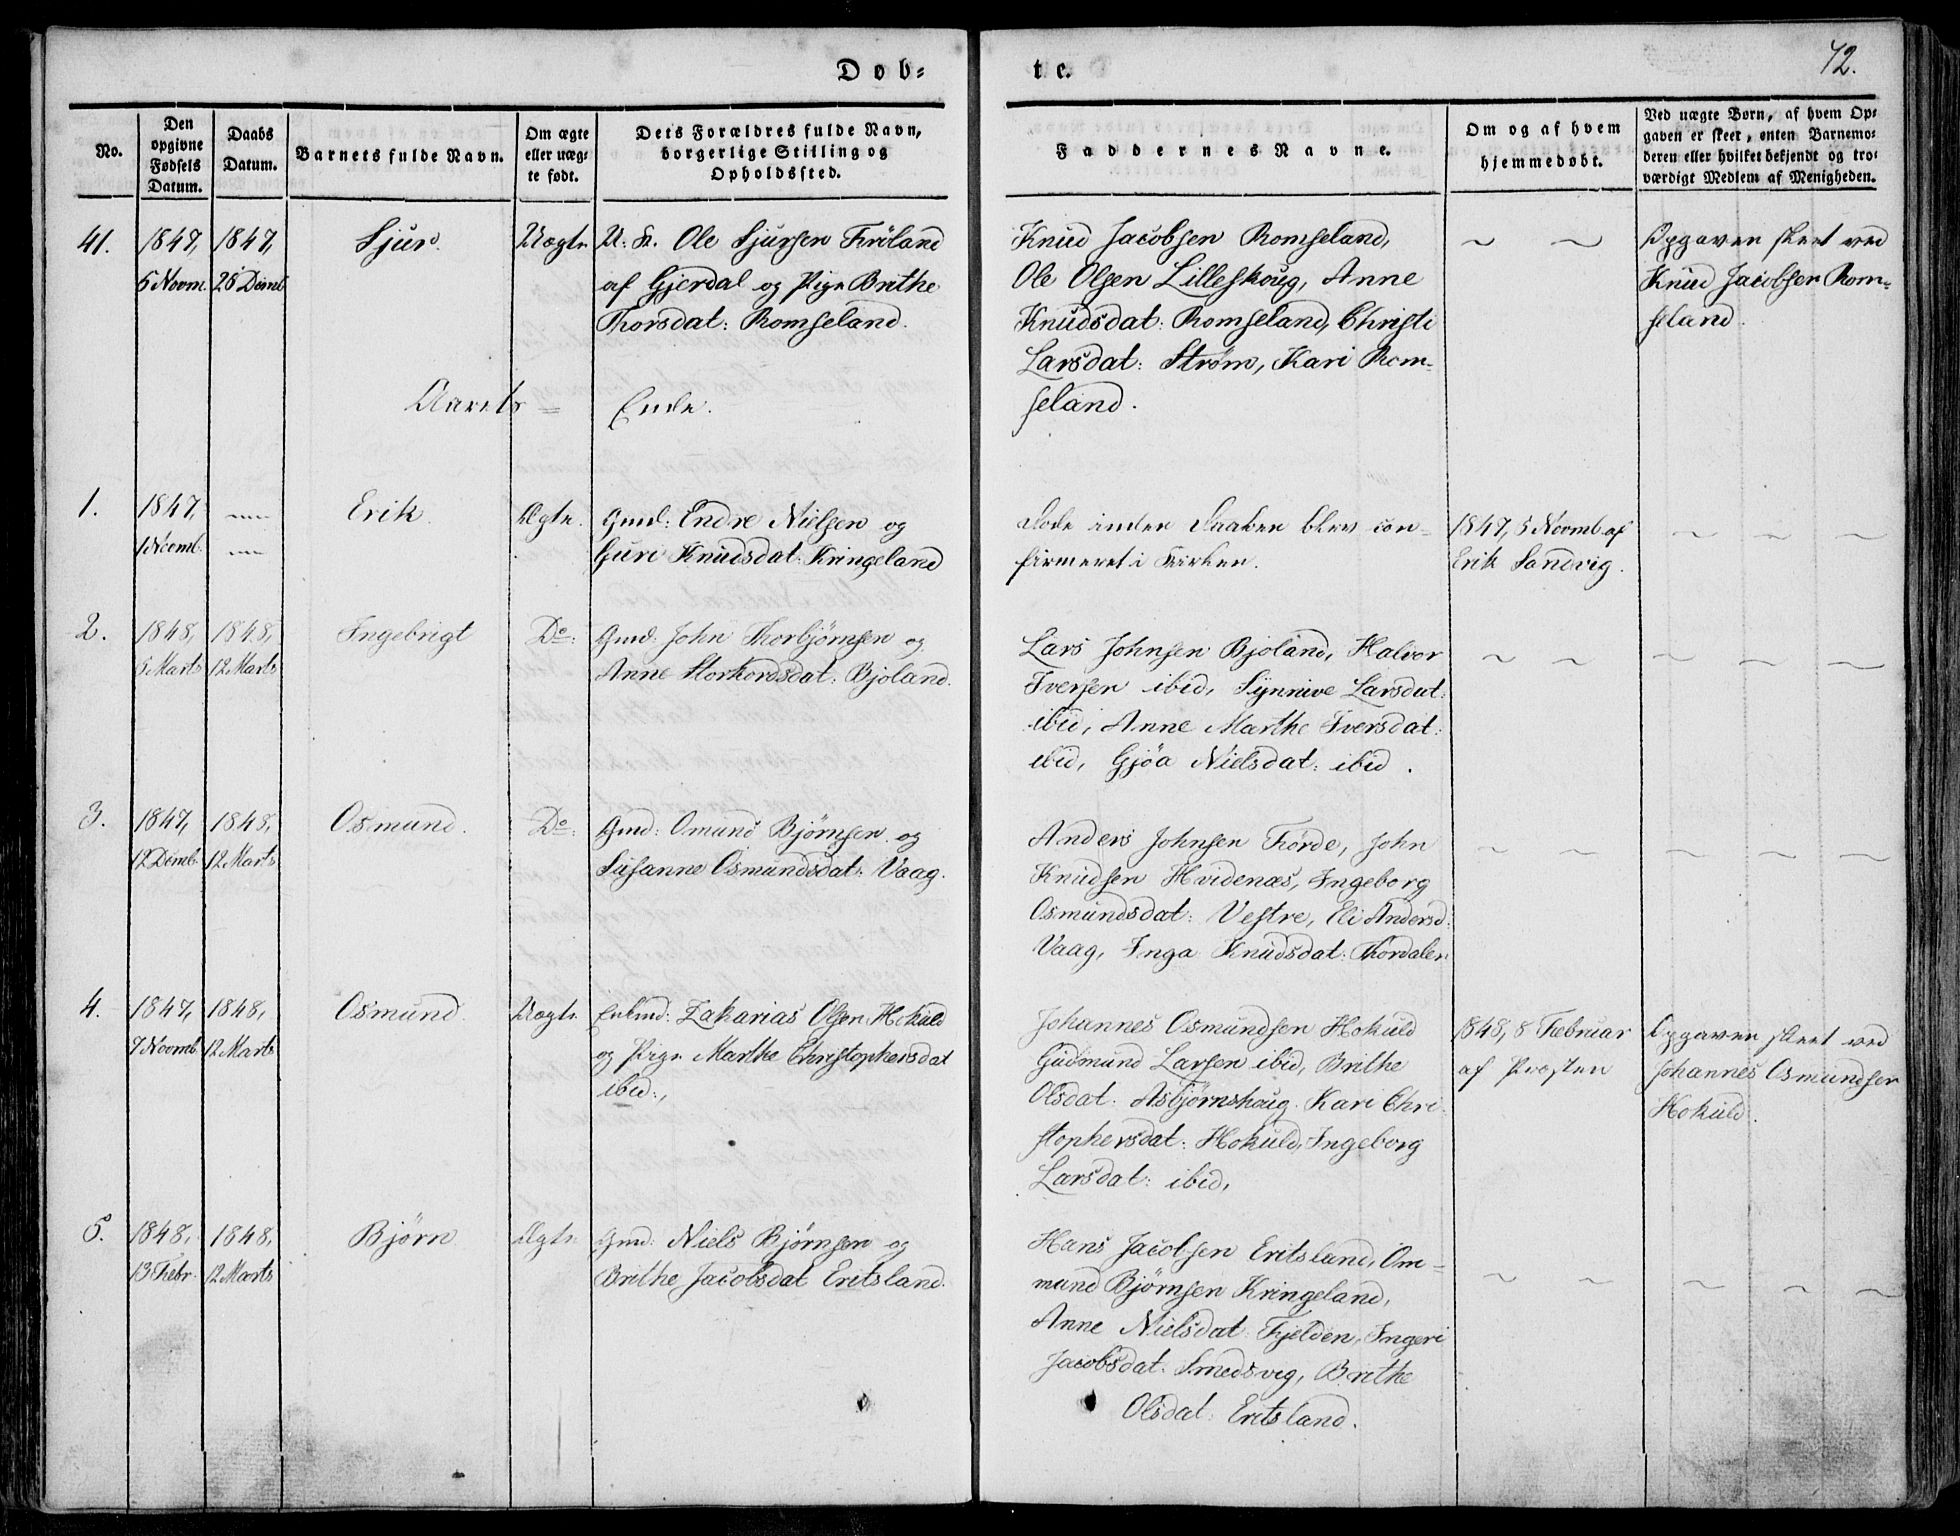 Døb=
te.
72.
No.
Den opgivne Fødsels Datum.
Daabs Datum.
Barnets fulde Navn.
Om ægte eller uæg- te født.
Dets Forældres fulde Navn, borgerlige Stilling og Opholdssted.
Faddernes Navne.
Om og af hvem hjemmedøbt.
Ved uægte Børn, af hvem Op- gaven er skeer, enten Barnemo- deren eller hvilket bekjendt og tro- værdigt Medlem af Menigheden.
41.
1847,
5 Novm.
1847,
26 Decmb
Sjur.
Uægte
U. K. Ole Sjursen Fröland
af Gjerdal og Pige Brithe
Thorsdat: Romseland.
Knud Jacobsen Romseland,
Ole Olsen Lilleskoug, Anne
Knudsdat: Romseland, Christi
Larsdat: Strøm, Kari Rom-
seland.
~ ~
Opgaven skeet ved
Knud Jacobsen Rom-
seland.
Aarets = Ende.
1.
1847,
1 Novmb.
Erik
Ægte.
Gmd: Endre Nielsen og
Guri Knudsdat: Kringeland
Døde inden Daaben blev con-
firmeret i Kirken.
1847, 5 Novmb. af
Erik Sandvig.
2.
1848,
5 Marts
1848,
12 Marts
Ingebrigt
Do:
Gmd: John Thorbjørnsen og
Anne Storkordsdat: Bjoland.
Lars Johnsen Bjoland, Halvor
Iversen ibid, Synnive Larsdat:
ibid, Anne Marthe Iversdat:
ibid, Gjöa Nielsdat: ibid.
3.
1847,
12 Decmb.
1848,
12 Marts
Osmund.
Do:
Gmd: Omund Bjørnsen og
Susanne Osmundsdat: Vaag.
Anders Johnsen Förde, John
Knudsen Hvidenæs, Ingeborg
Osmundsdat: Vestre, Eli Andersd:
Vaag, Inga Knudsdat: Thordalen
4.
1847,
7 Novmb.
1848,
12 Marts
Osmund.
Uægte
Enkmd: Zakarias Olsen Hokuld
og Pige Marthe Christophersdat
ibid:,
Johannes Osmundsen Hokuld
Gudmund Larsen ibid, Brithe
Olsdat: Asbjørnshoug. Kari Chri-
stophersdat: Hokuld, Ingeborg
Larsdat: ibid,
1848, 8 Februar
af Præsten
Opgaven skeet ved
Johannes Osmundsen
Hokuld.
5.
1848,
13 Febr.
1848,
12 Marts
Bjørn
Ægte
Gmd: Niels Bjørnsen og
Brithe Jacobsdat Eritsland.
Hans Jacobsen Eritsland, Om-
mund Bjørnsen Kringeland,
Anne Nielsdat: Fjelden, Ingeri
Jacobsdat: Smedsvig, Brithe
Olsdat: Eritsland.